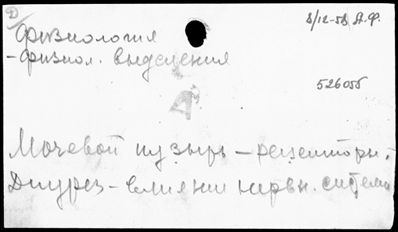 Д
8/12-58 А.Ф.
Физиология
- физиол. выделения
526055
Д
Мочевой пузырь – рецепторы.
Диурез – влияние нервн. система